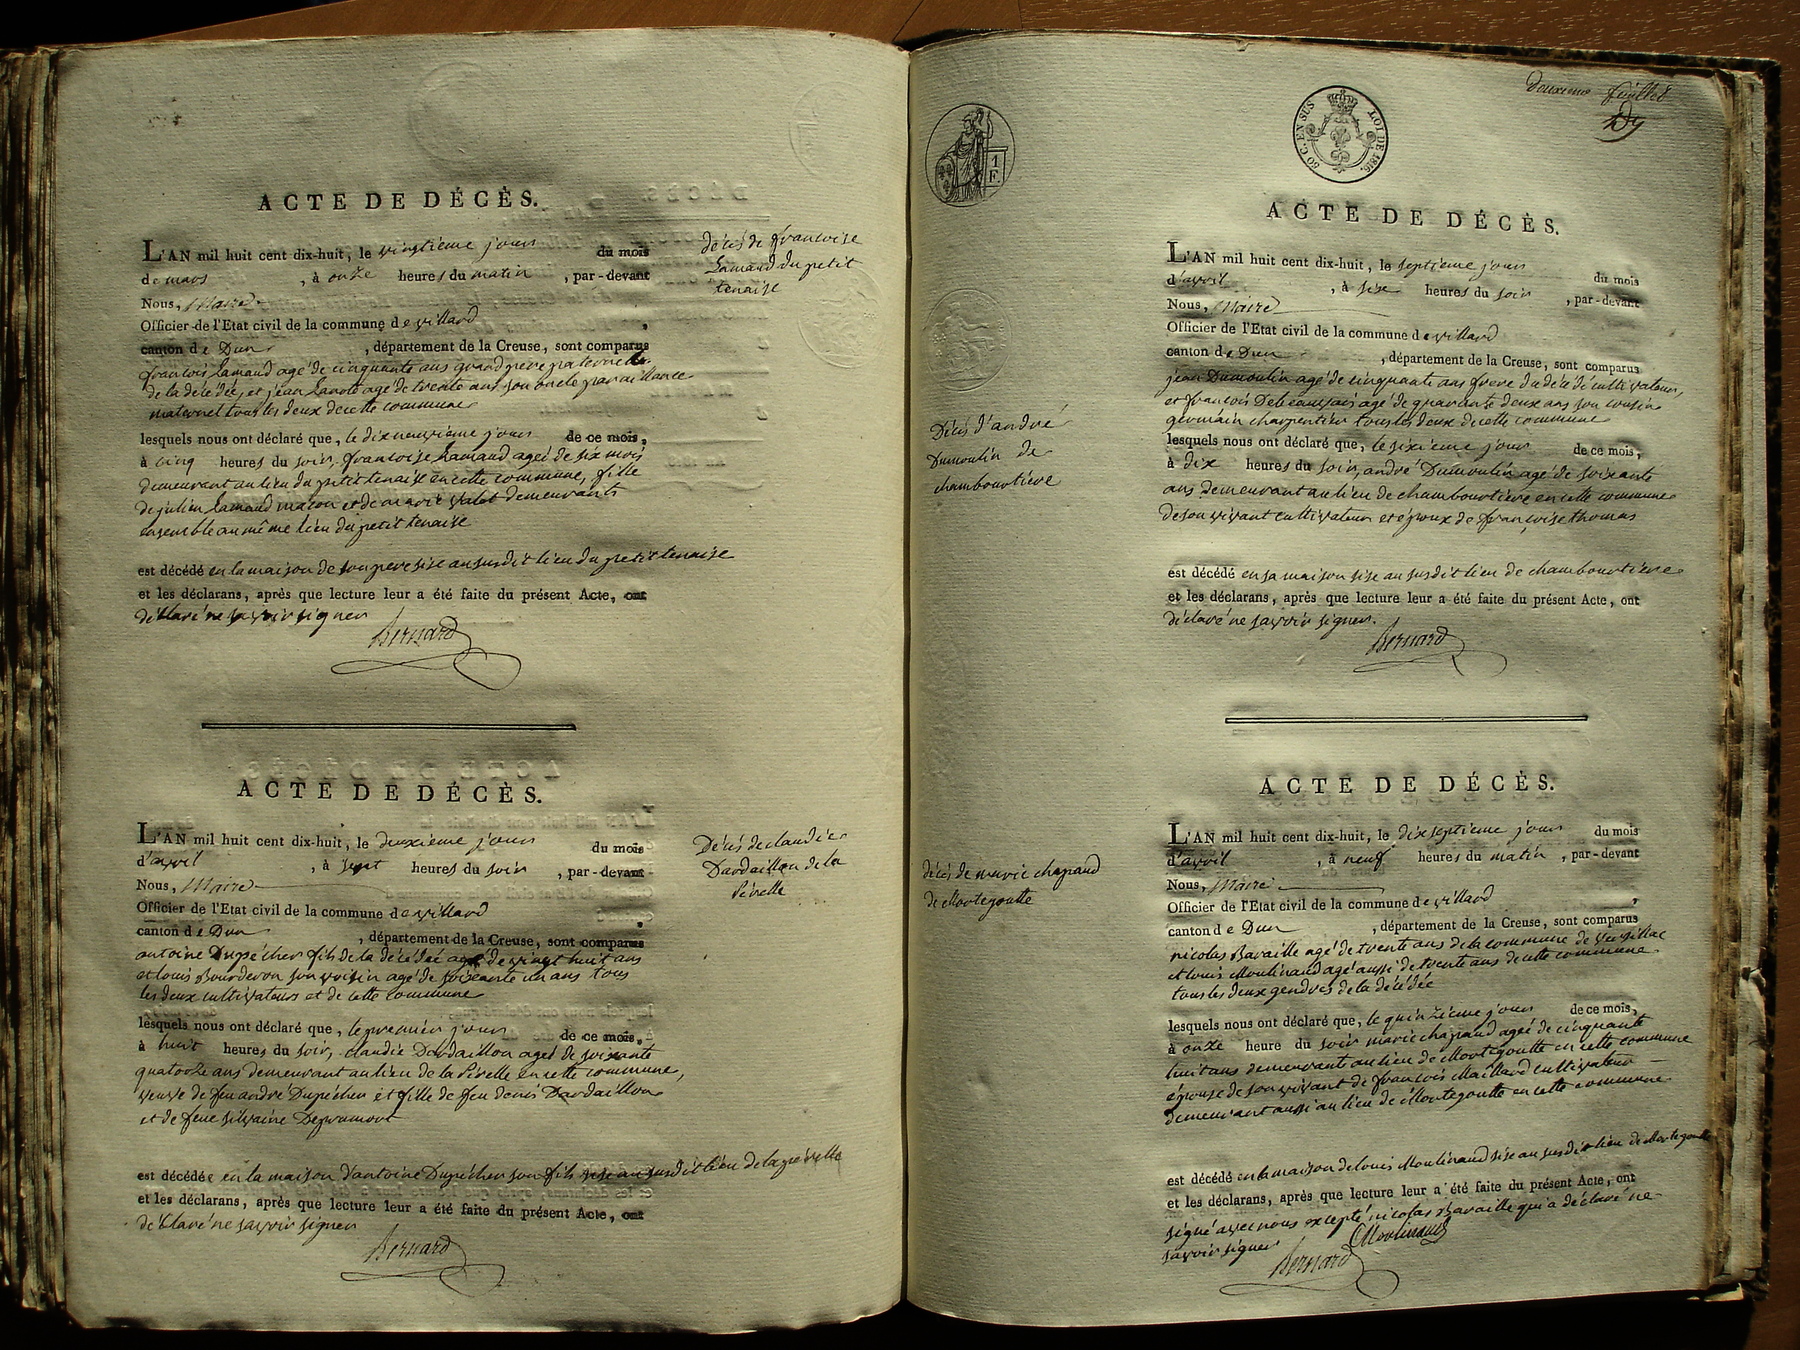 ACTE DE DÉCÈS.
L'AN mil huit cent dix-huit, le vingtieme jour du mois
de mars, à onze heures du matin, par-devant
Nous, Maire
Officier de l'Etat civil de la commune de villard
canton de Dun, département de la Creuse, sont comparus
françois Lamaud agé de cinquante ans grand pere paternelle
de la décédée, et jean Lanote agé de trente ans son oncle par aillance
maternel tous les deux de cette commune
lesquels nous ont déclaré que, le dix neuvieme jour de ce mois,
à cinq heures du soir, francoise Lamaud ageé de six mois
demeurant au lieu du petit tenaise en cette commune, fille
de julien Lamaud maçon et de marie valot demeurants
ensemble au même lieu du petit tenaise
est décédé en la maison de son pere sise au susdit lieu du petit tenaise
et les déclarans, après que lecture leur a été faite du présent Acte, ont
déclaré ne savoir signer
Bernard
décés de francoise
Lamaud du petit
tenaise
ACTE DE DÉCÈS.
L'AN mil huit cent dix-huit, le deuxième jour du mois
d'avril, à sept heures du soir, par-devant
Nous, Maire
Officier de l'Etat civil de la commune de villard
canton de Dun, département de la Creuse, sont comparus
antoine Dupécher fils de la décédée agé de vingt huit ans
et louis Bourderon son voisin agé de soixante un ans tous
les deux cultivateurs et de cette commune
lesquels nous ont déclaré que, le premier jour de ce mois,
à huit heures du soir, claudie Dardaillon ageé de soixante
quatorze ans demeurant au lieu de la Pérelle en cette commune,
veuve de feu andré Dupécher et fille de feu denis Dardaillon
et de feue silvaine
est décédée en la maison d'antoine Dupécher son fils sise au susdit lieu de la pérelle
et les déclarans, après que lecture leur a été faite du présent Acte, ont
déclaré ne savoir signer
Bernard
Décés de claudie
Dardaillon de la
Pérelle
1
F.
50 C. EN SUS LOI DE 1816.
Deuxieme feuillet
ACTE DE DÉCÈS.
L'AN mil huit cent dix-huit, le septieme jour du mois
d'avril, à six heures du soir, par-devant
Nous, Maire
Officier de l'Etat civil de la commune de villard
canton de Dun, département de la Creuse, sont comparus
jean Dumoulin agé de cinquante ans frere du décédé cultivateur,
et françois Debeauvais agé de quarante deux ans son cousin
germain charpentier tous les deux de cette commune
lesquels nous ont déclaré que, le sixieme jour de ce mois,
à dix heures du soir, andré Dumoulin agé de soixante
ans demeurant au lieu de chambourtiere en cette commune
de son vivant cultivateur et époux de françoise thomas
est décédé en sa maison sise au susdit lieu de chambourtiere
et les déclarans, après que lecture leur a été faite du présent Acte, ont
déclaré ne savoir signer.
Bernard
Décés d'andré
Dumoulin de
chambourtiere
ACTE DE DÉCÈS.
L'AN mil huit cent dix-huit, le dix septieme jour du mois
d'avril, à neuf heures du matin, par-devant
Nous, Maire
Officier de l'Etat civil de la commune de villard
canton de Dun, département de la Creuse, sont comparus
nicolas Bavaille agé de trente ans de la commune de
et louis Moulinaud agé aussi de trente ans de cette commune
tous les deux gendres de la décédée
lesquels nous ont déclaré que, le quinzieme jour de ce mois,
à onze heure du soir marie chapaud ageé de cinquante
huit ans demeurant au lieu de Montegoutte en cette commune
épouse de son vivant de françois Maillard cultivateur
demeurant aussi au lieu de Montegoutte en cette commune
est décédé en la maison de louis Moulinaud sise au susdit lieu de Montegoutte
et les déclarans, après que lecture leur a été faite du présent Acte, ont
signé avec nous excepté nicolas Bavaille qui a déclaré ne
savoir signer
Moulinaud
Bernard
décés de marie chapaud
de Montegoutte